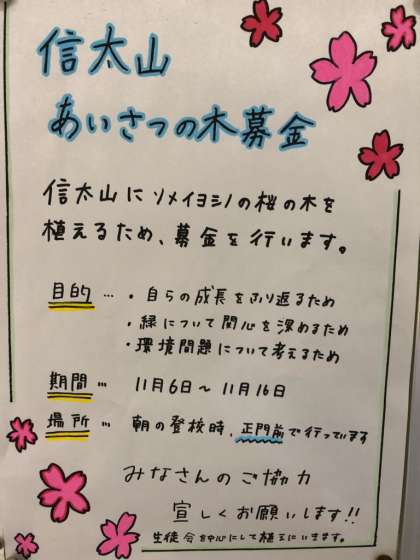 信太山
あいさつの木募金
信太山にソメイヨシノの桜の木を
植えるため、募金を行います。
目的…・自らの成長をふり返るため
・緑について関心を深めるため
・環境問題について考えるため
期間… 11月6日～11月16日
場所… 朝の登校時、正門前で行っています
みなさんのご協力
宜しくお願いします!!
生徒会を中心にして植えにいきます。